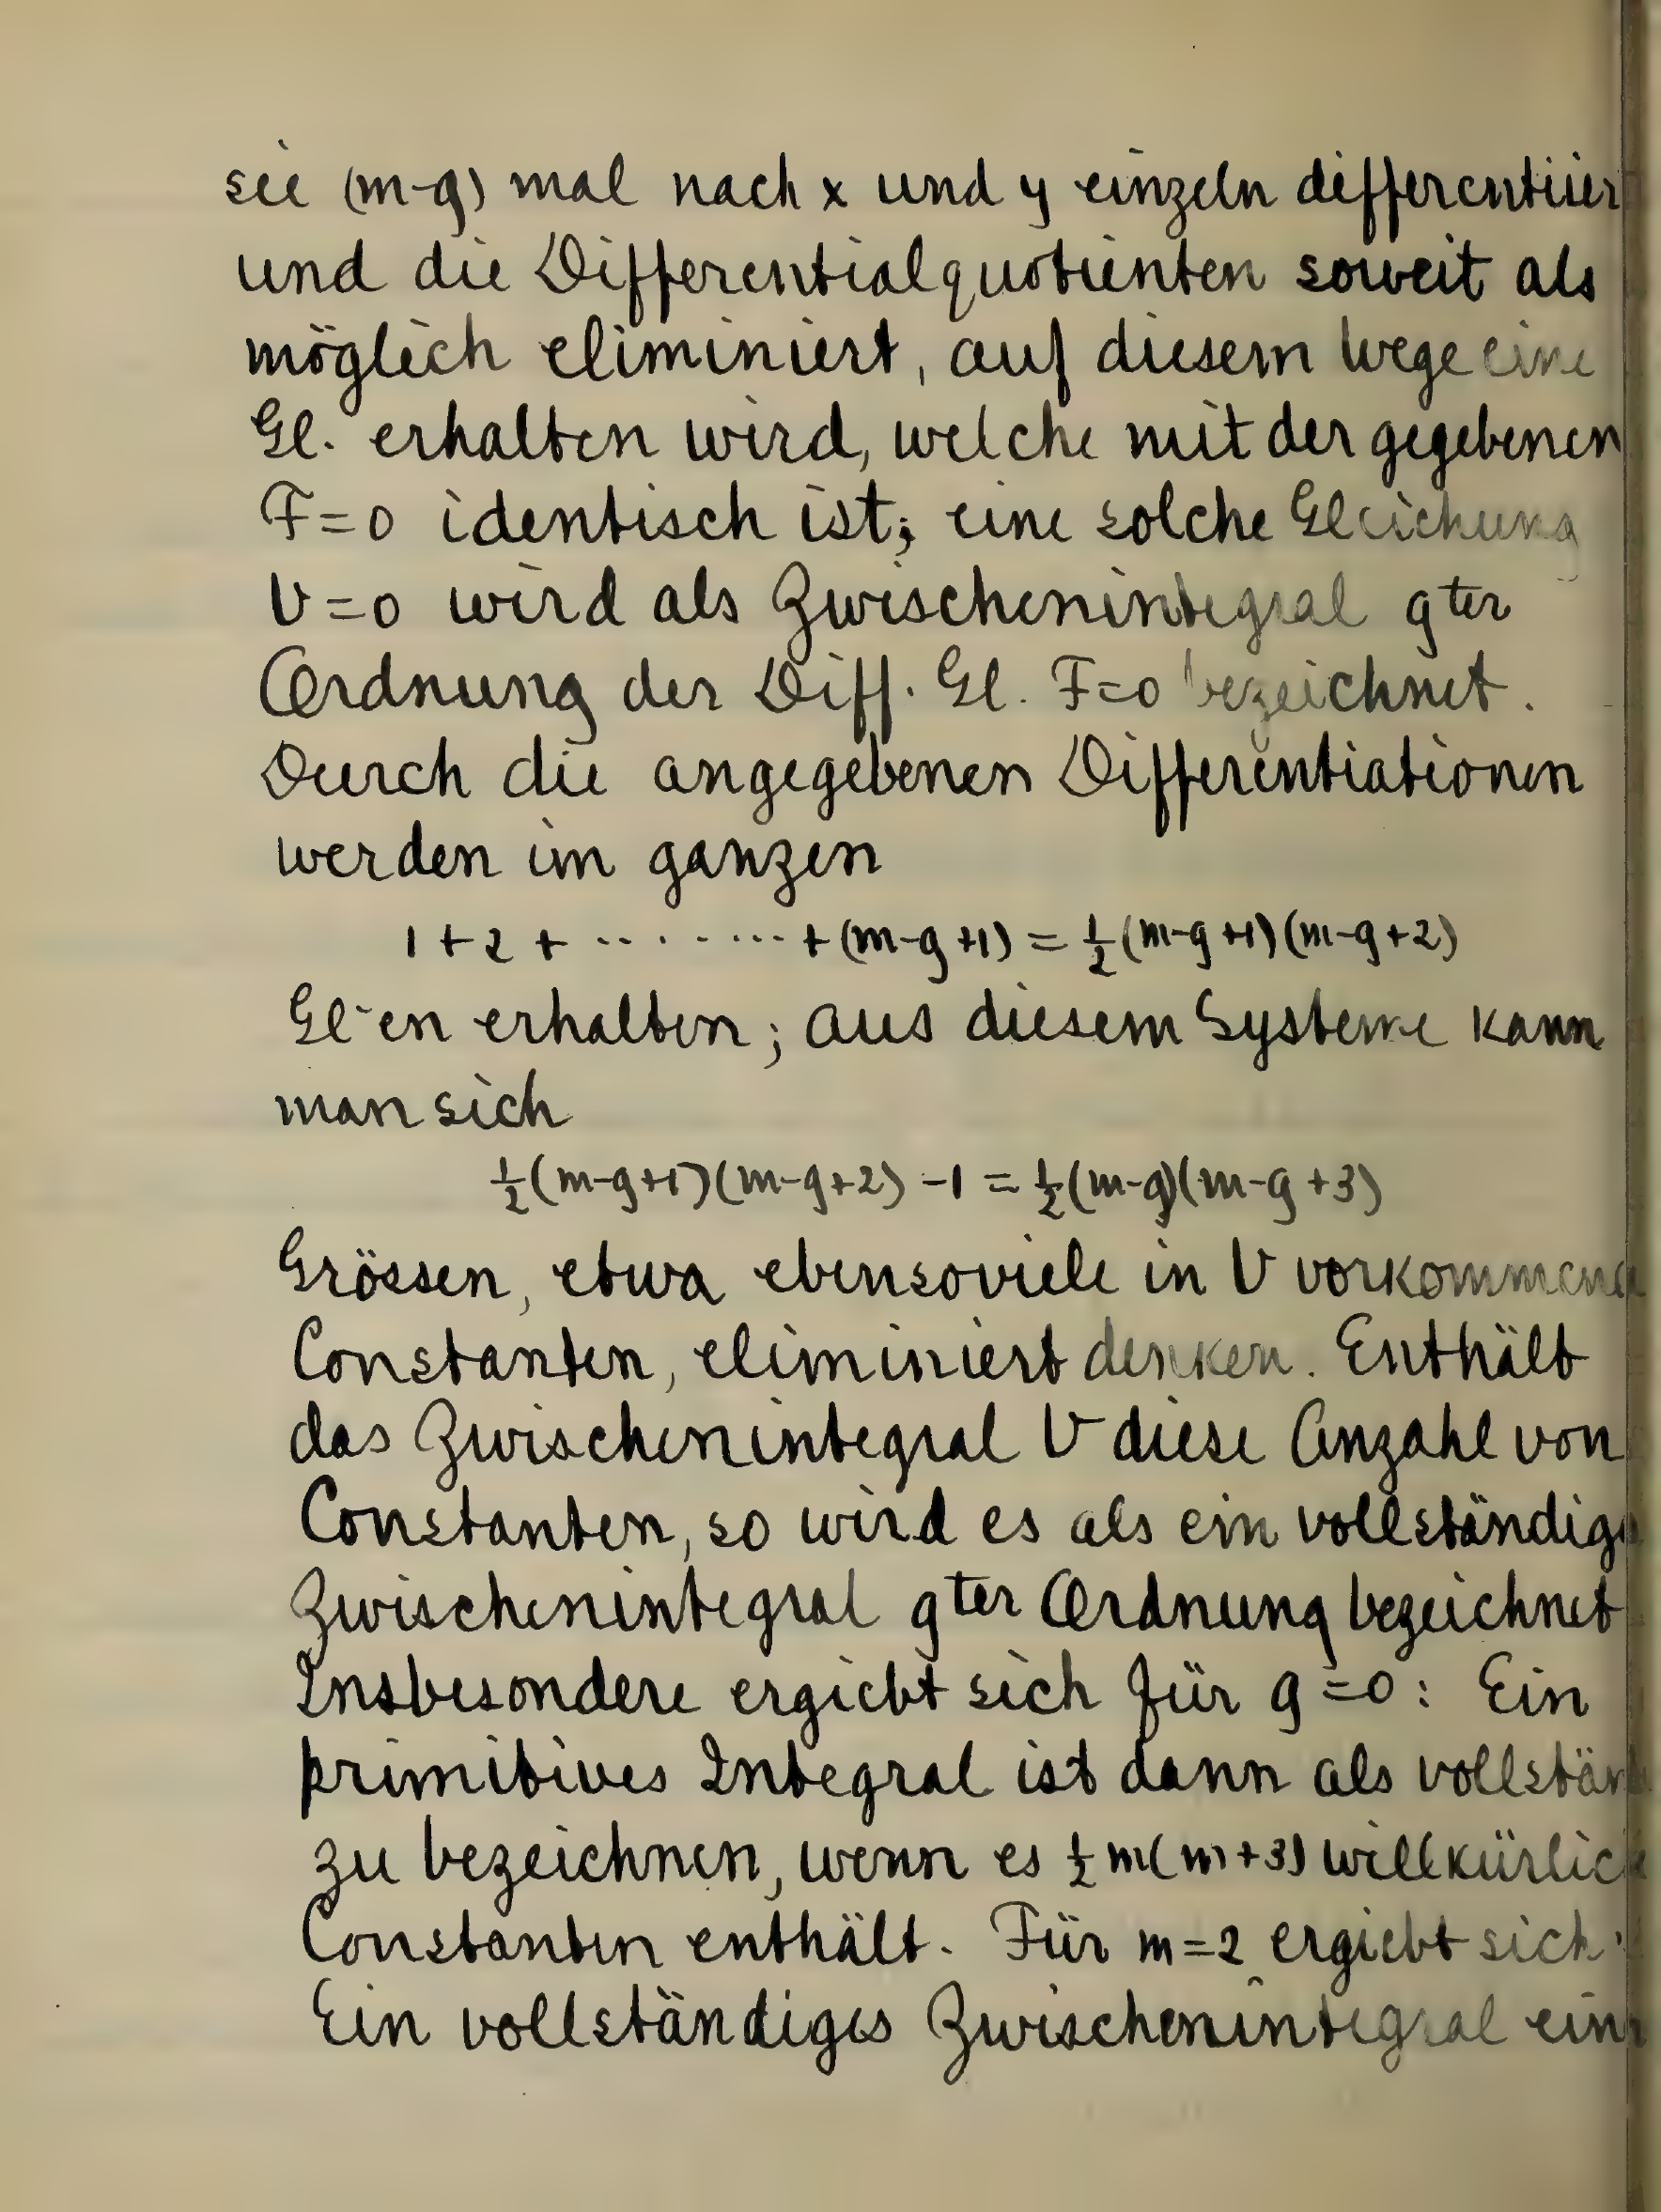 sie (m-g) mal nach x und y einzeln differentiier
und die Differentialquotienten soweit als
möglich eliminiert, auf diesem Wege eine
Gl. erhalten wird, welche mit der gegebenen
F=0 identisch ist; eine solche Gleichung
V=0 wird als Zwischenintegral gter
Ordnung der Diff. Gl. F=0 bezeichnet.
Durch die angegebenen Differentiationen
werden im ganzen
1+2+ ......... +(m-g+1) = ½(m-g+1)(m-g+2)
Gl-en erhalten; aus diesem Systeme kann
man sich
½(m-g+1)(m-g+2) -1 = ½(m-g)(m-g+3)
Grössen, etwa ebensoviele in V vorkommend
Constanten, eliminiert denken. Enthält
das Zwischenintegral V diese Anzahl von
Constanten, so wird es als ein vollständige
Zwischenintegral gter Ordnung bezeichnet
Insbesondere ergiebt sich für g=0: Ein
primitives Integral ist dann als vollständ
zu bezeichnen, wenn es ½m(m+3) willkürlich
Constanten enthält. Für m=2 ergiebt sich:
Ein vollständiges Zwischenintegral einer